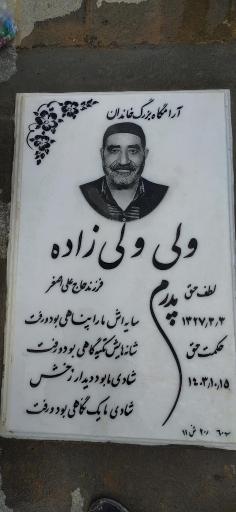 آرامگاه بزرگ خاندان
ولی ولی زاده
فرزند حاج علی اصغر
لطف حق
۱۳۲۷,۳,۳
حکمت حق
۱۴۰۳,۱۰,۱۵
پدرم
سایه اش ما را پناهی بود و رفت
شانه هایش تکیه گاهی بود و رفت
شادی ما بود دیدار رخش
شادی ما یک نگاهی بود و رفت